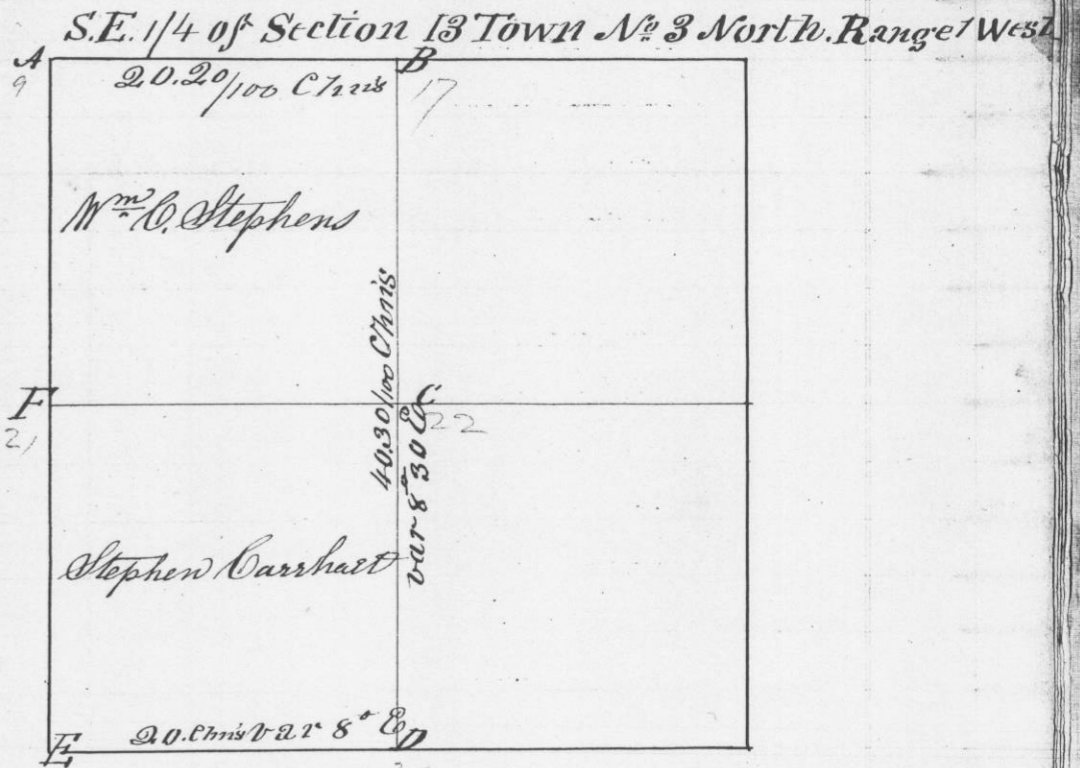 S.E. 1/4 of Section 13 Town No 3 North. Range 1 West
A B
9 20.20/100 Chns 17
Wm C. Stephens
40.30/100 Chns
F C
21 22
var 8° 30 E
Stephen Carrhart
20. Chns var 8° E
E D